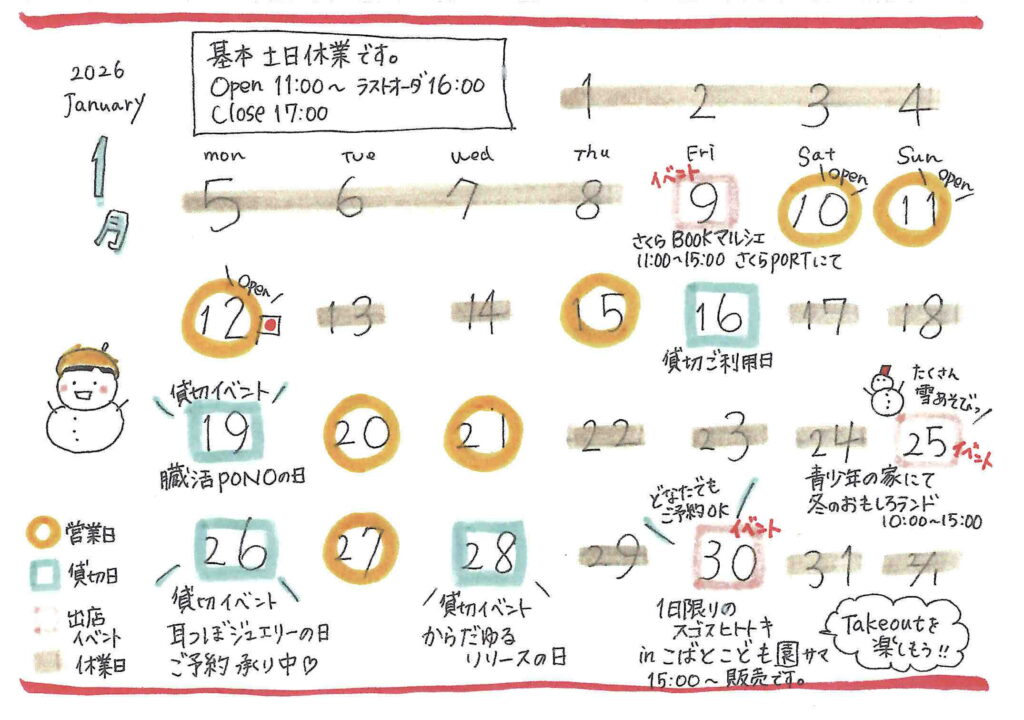 2026
January
1
月
基本 土日休業です。
Open 11:00〜 ラストオーダ16:00
Close 17:00
1 2 3 4
mon Tue Wed Thu Fri Sat Sun
Open Open
イベント
5 6 7 8 9 10 11
さくらBOOKマルシェ
11:00〜15:00 さくらPORTにて
Open
12 13 14 15 16 17 18
貸切ご利用日
貸切イベント
たくさん
雪あそびっ
19 20 21 22 23 24 25
イベント
臓活PONOの日
青少年の家にて
冬のおもしろランド
10:00〜15:00
どなたでも
ご予約OK
イベント
26 27 28 29 30 31 2/1
貸切イベント
耳つぼジュエリーの日
ご予約承り中♡
貸切イベント
からだゆる
リリースの日
1日限りの
スゴスヒトトキ
in こばとこども園サマ
15:00〜販売です。
Takeoutを
楽しもう!!
営業日
貸切日
出店
イベント
休業日